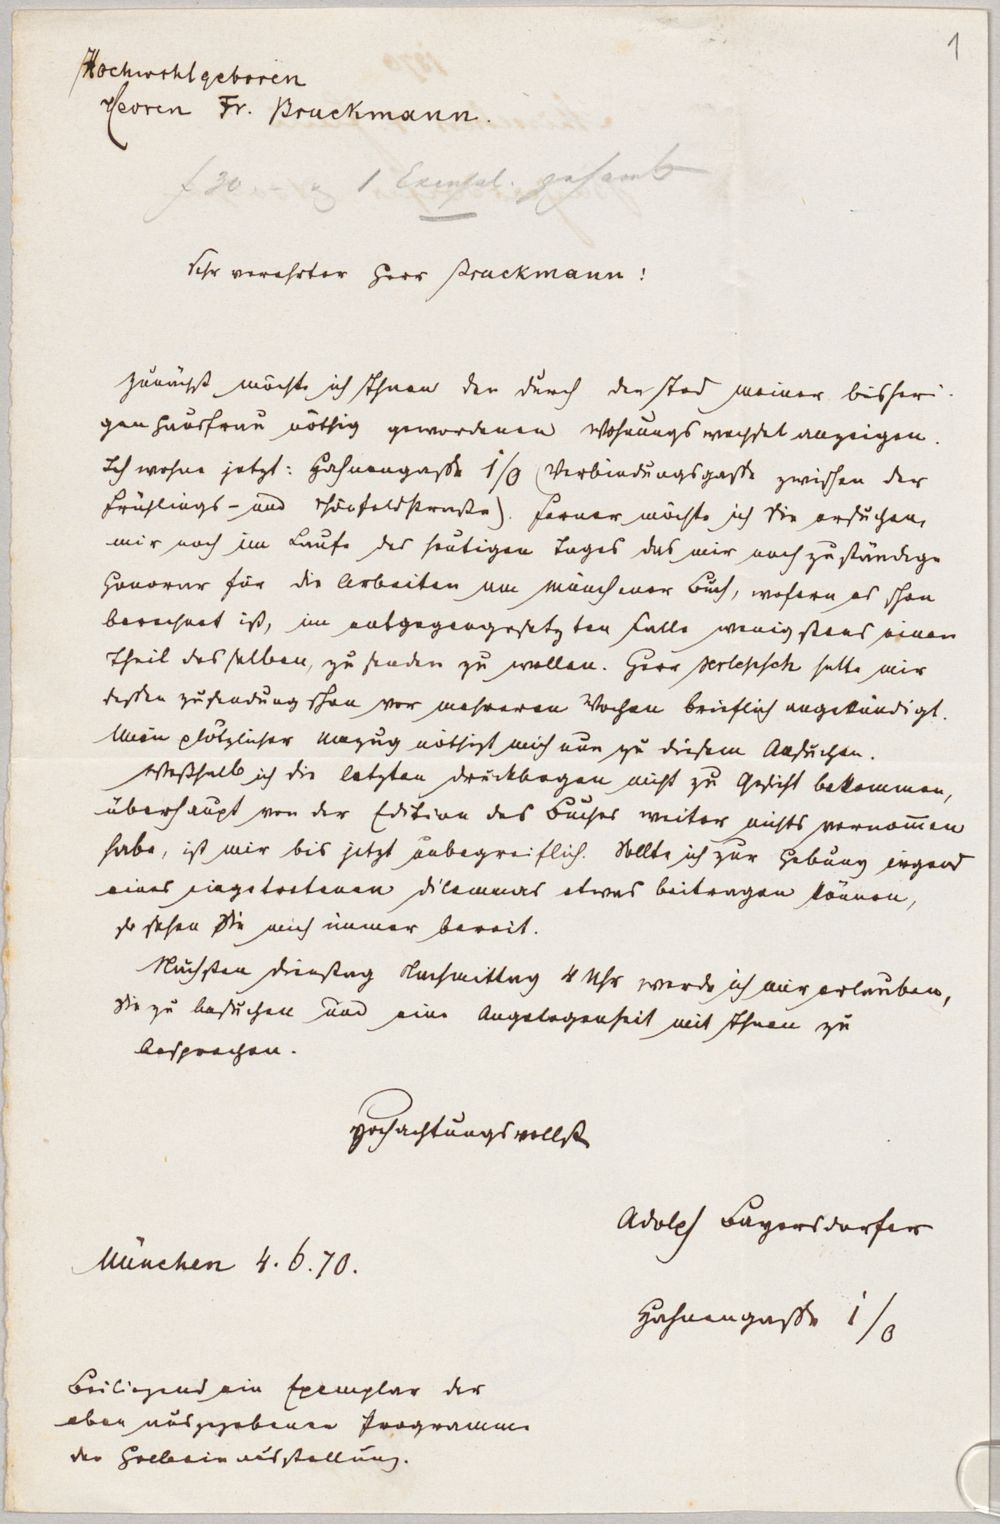 1
Hochwohlgeboren
Herren Fr. Bruckmann.
f 30 1 Exempl. gesandt
Sehr verehrter Herr Bruckmann!
Zunächst möchte ich Ihnen den durch den Tod meiner bisheri-
gen Hausfrau nöthig gewordenen Wohnungswechsel anzeigen.
Ich wohne jetzt: Hahnengasse 1/0 (Verbindungsgasse zwischen der
Frühlings- und Schönfeldstrasse). Ferner möchte ich Sie ersuchen,
mir noch im Laufe des heutigen Tages das mir noch zuständige
Honorar für die Arbeiten am Münchener Buch, wofern es schon
berechnet ist, im entgegengesetzten Falle wenigstens einen
Theil desselben, zu senden zu wollen. Herr Berlepsch hatte mir
dessen Zusendung schon vor mehreren Wochen brieflich angekündigt.
Mein plötzlicher Umzug nöthigt mich nun zu diesem Ansuchen.
Weßhalb ich die letzten Druckbogen nicht zu Gesicht bekommen,
überhaupt von der Edition des Buches weiter nichts vernommen
habe, ist mir bis jetzt unbegreiflich. Sollte ich zur Hebung irgend
eines eingetretenen Dilemmas etwas beitragen können,
so sehen Sie mich immer bereit.
Nächsten Dienstag Nachmittag 4 Uhr werde ich mir erlauben,
Sie zu besuchen und eine Angelegenheit mit Ihnen zu
besprechen.
Hochachtungsvollst
Adolph Bayersdorfer
München 4.6.70.
Hahnengasse 1/0
Beiliegend ein Exemplar der
eben ausgegebenen Programme
der Holbeinausstellung.